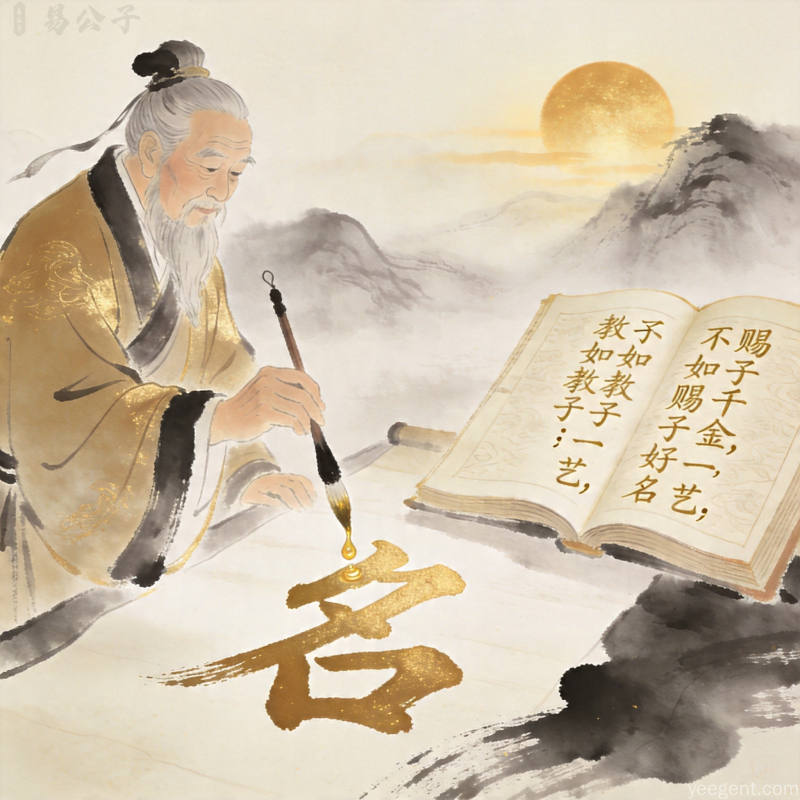 易公子
赐子千金，一，艺；
不如赐子好名
子如教子一艺，
教如教子；
名
yeegent.com